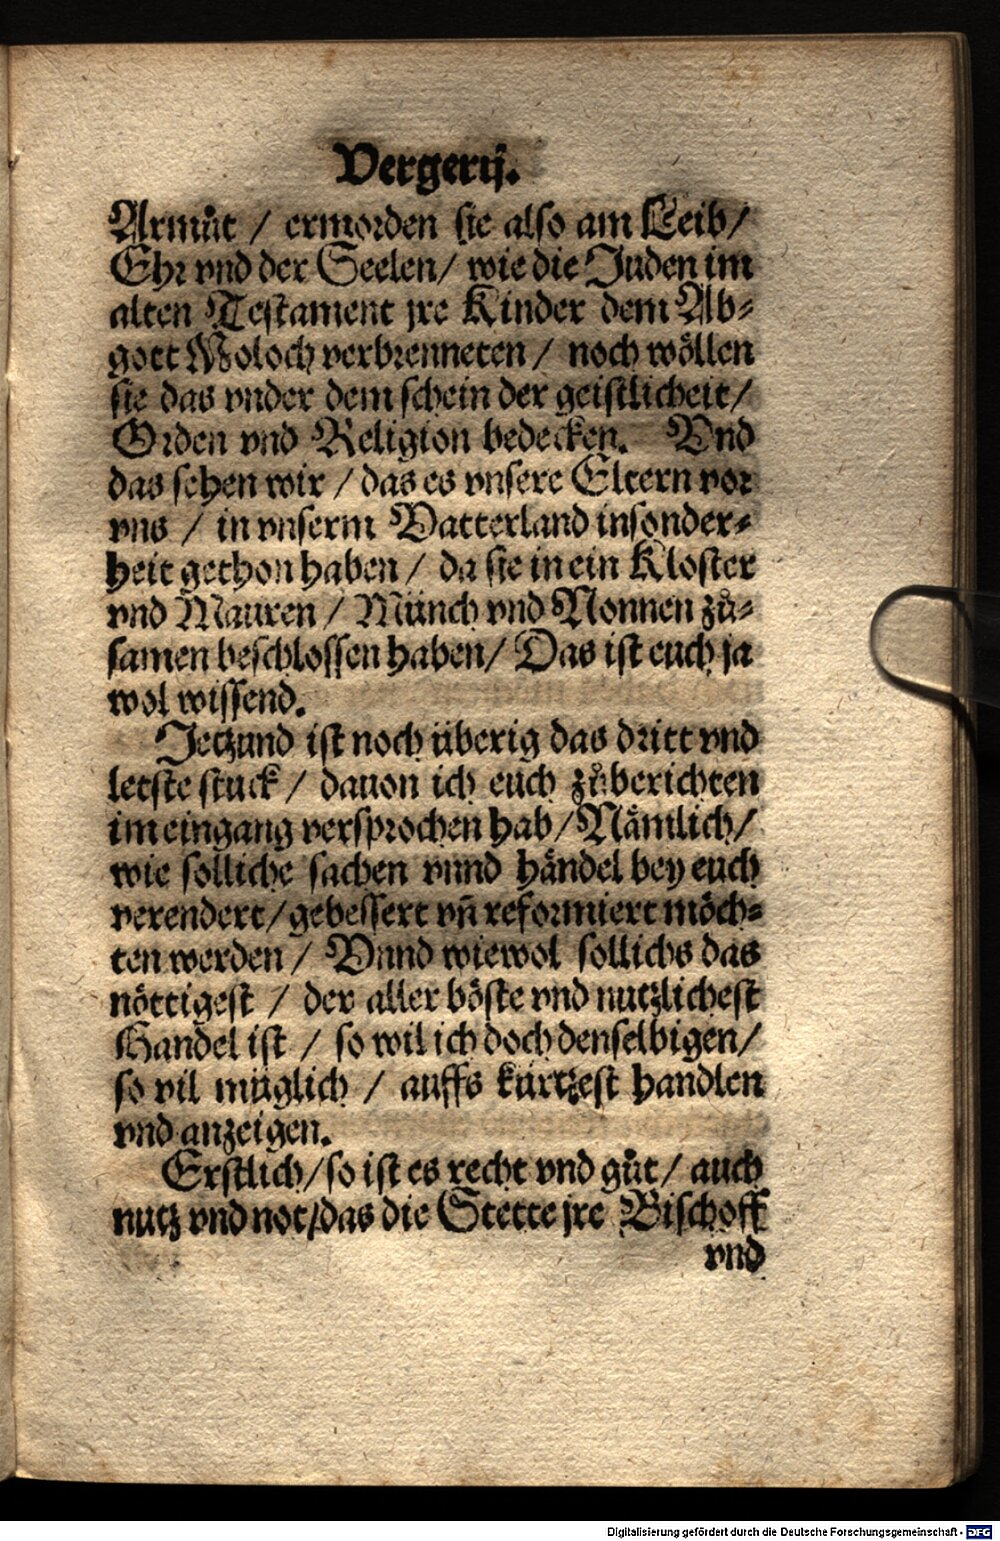 Vergerij.
Armůt / ermorden sie also am Leib/
Ehr vnd der Seelen/ wie die Juden im
alten Testament jre Kinder dem Ab-
gott Moloch verbrenneten / noch wöllen
sie das vnder dem schein der geistlicheit/
Orden vnd Religion bedecken. Vnd
das sehen wir / das es vnsere Eltern vor
vns / in vnserm Vatterland insonder-
heit gethon haben / da sie in ein Kloster
vnd Mauren / Münch vnd Nonnen zů-
samen beschlossen haben/ Das ist euch ja
wol wissend.
Jetzund ist noch überig das dritt vnd
letste stuck / dauon ich euch zůberichten
im eingang versprochen hab/ Nämlich/
wie solliche sachen vnnd händel bey euch
verendert/ gebessert vñ reformiert möch-
ten werden / Vnnd wiewol sollichs das
nöttigest / der aller böste vnd nutzlichest
Handel ist / so wil ich doch denselbigen/
so vil müglich / auffs kürtzest handlen
vnd anzeigen.
Erstlich/ so ist es recht vnd gůt/ auch
nutz vnd not/das die Stette jre Bischoff
vnd
Digitalisierung gefördert durch die Deutsche Forschungsgemeinschaft - DFG